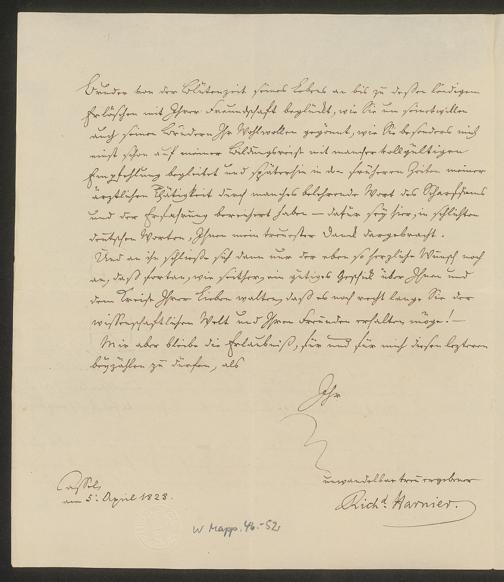 Bruder von der Blütenzeit seines Lebens an bis zu dessen leidigem
Erlöschen mit Ihrer Freundschaft beglückt, wie Sie um seinetwillen
auch seinen Brüdern Ihr Wohlwollen gegönnt, wie Sie besonders mich
einst schon auf meiner Bildungsreise mit mancher vollgültigen
Empfehlung begleitet und späterhin in den früheren Zeiten meiner
ärztlichen Thätigkeit durch manches belehrende Wort des Scharfsinns
und der Erfahrung bereichert haben — dafür sey hier, in schlichten
deutschen Worten, Ihnen mein treuester Dank dargebracht.
Und an ihn schließe sich dann nur der eben so herzliche Wunsch noch
an, daß fortan, wie seither, ein gütiges Geschick über Ihnen und
dem Kreise Ihrer Lieben walten, daß es noch recht lange Sie der
wissenschaftlichen Welt und Ihren Freunden erhalten möge! —
Mir aber bleibe die Erlaubniß, für und für mich diesen letzteren
beyzählen zu dürfen, als
Ihr
unwandelbar treu ergebener
Cassel,
am 5. April 1828.
Rich<sup>d</sup>. Harnier.
W Mapp. 46.-52.